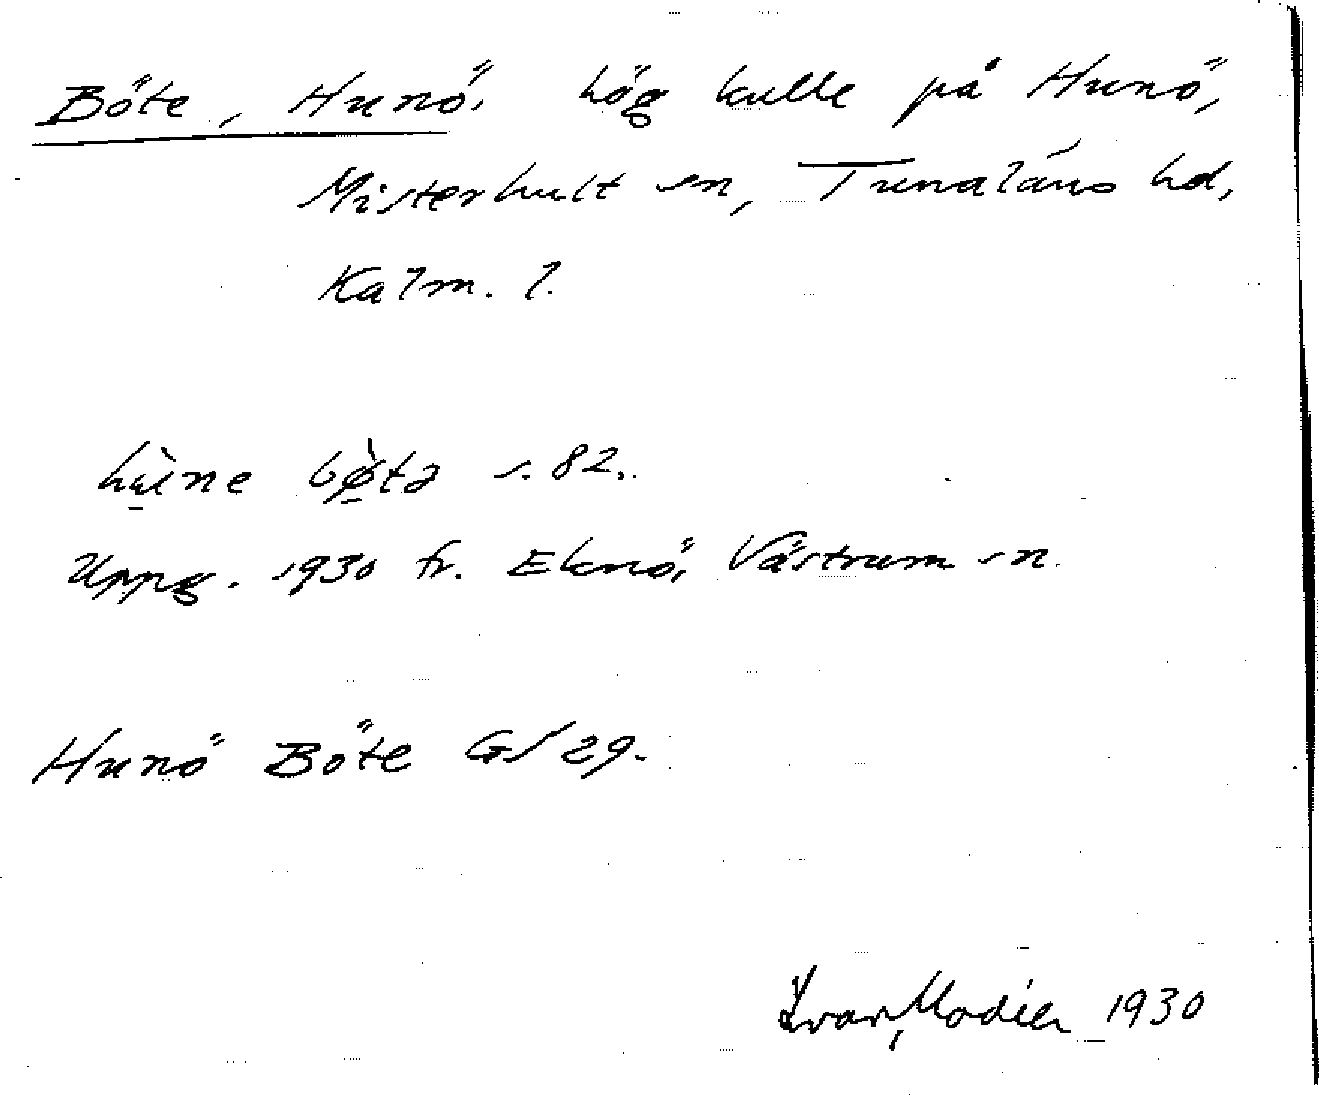 Böte, Hunö. hög kulle på Hunö,
Misterhult sn, Tunaläns hd,
Kalm. l.
hùne bø̀ta s. 82.
Uppg. 1930 fr. Eknö, Västrum sn.
Hunö Böte GS 29.
Ivar Modéer 1930